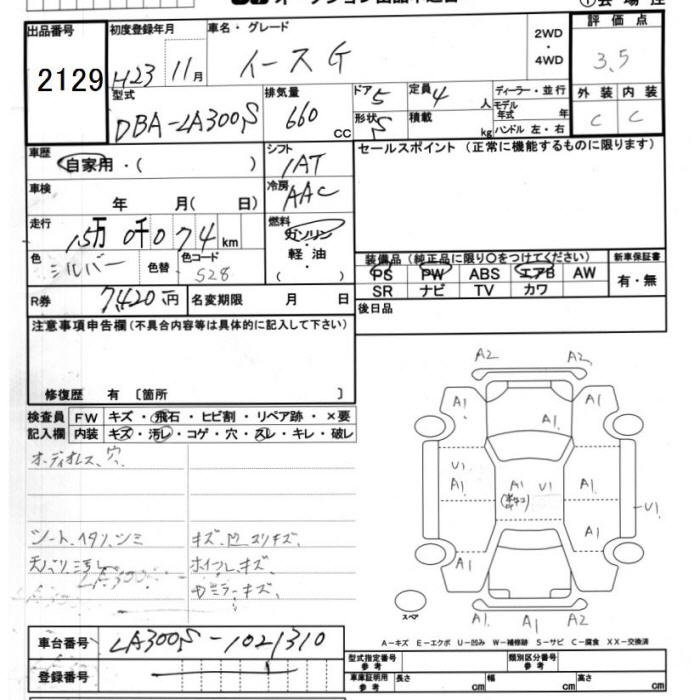 出品番号
2129
初度登録年月
H23 11月
車名・グレード
イース G
2WD
・
4WD
評価点
3.5
外装 内装
C C
型式
DBA-LA300S
排気量
660 CC
ドア 5
形状 5
定員 4 人
積載 kg
ディーラー・並行
モデル年式 年
ハンドル 左・右
車歴
自家用・( )
シフト
IAT
セールスポイント (正常に機能するものに限ります)
車検
年 月( 日)
冷房
AAC
走行
15万 0千074 km
燃料
ガソリン
軽・油
( )
色
シルバー
色替
色コード
S28
装備品 (純正品に限り○をつけてください)
新車保証書
PS PW ABS エアB AW
SR ナビ TV カワ
有・無
R券
7420円
名変期限 月 日
後日品
注意事項申告欄 (不具合内容等は具体的に記入して下さい)
修復歴 有 〔箇所 〕
検査員
記入欄
FW キズ・飛石・ヒビ割・リペア跡・×要
内装 キズ・汚レ・コゲ・穴・スレ・キレ・破レ
オーディオレス、穴
シート、ヘタリ、シミ
キズ、凹、スリキズ、
ホイール、キズ、
ミラーキズ、
A2 A2
A1 A1 A1
U1 A1 A1 U1 A1 A1 U1
A1 A1
A2 A1 A1 A2
スペア
A-キズ E-エクボ U-凹み W-補修跡 S-サビ C-腐食 XX-交換済
車台番号
LA300S-1021310
登録番号
型式指定番号 参考
類別区分番号 参考
車庫証明用 参考
長さ cm 幅 cm 高さ cm